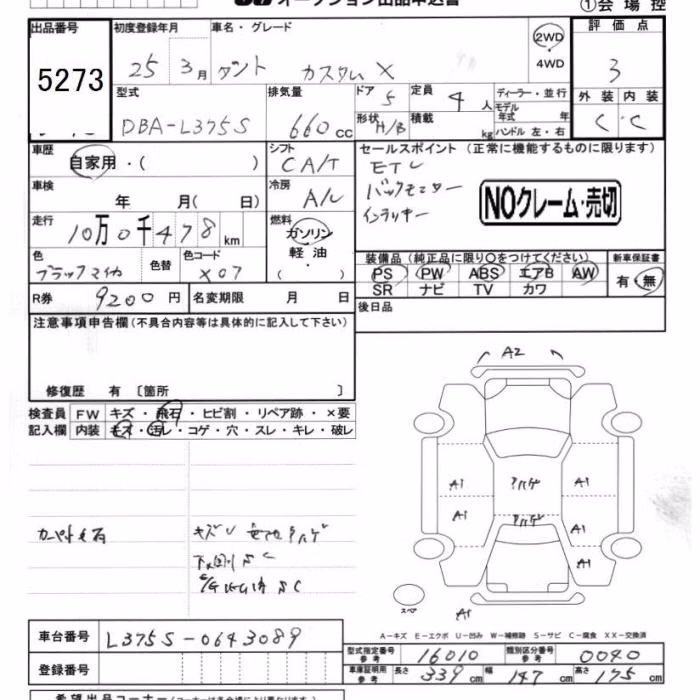 オークション出品申込書
①会場控
出品番号
5273
初度登録年月
25 3月
車名・グレード
タント カスタム X
2WD
・
4WD
評価点
3
外装 内装
C C
型式
DBA-L375S
排気量
660cc
ドア
5
定員
4人
ディーラー・並行
モデル
年式 年
ハンドル 左・右
形状
H/B
積載
kg
車歴
自家用・( )
シフト
CA/T
車検
年 月( 日)
冷房
A/C
走行
10万0千478km
燃料
ガソリン
・
軽油
( )
色
ブラックマイカ
色替
色コード
X07
R券
9200円
名変期限 月 日
セールスポイント (正常に機能するものに限ります)
ETC
バックモニター
インテリキー
NOクレーム・売切
装備品 (純正品に限り○をつけてください)
PS PW ABS エアB AW
SR ナビ TV カワ
新車保証書
有・無
後日品
注意事項申告欄(不具合内容等は具体的に記入して下さい)
修復歴 有 〔箇所 〕
検査員
記入欄
FW キズ・飛石・ヒビ割・リペア跡・×要
内装 キズ・汚レ・コゲ・穴・スレ・キレ・破レ
キズU
下回りSC
A2
A1
A1
ハゲ
A1
A1
ハゲ
A1
A1
A1
スペア
A-キズ E-エクボ U-凹み W-補修跡 S-サビ C-腐食 XX-交換済
車台番号
L375S-0643089
登録番号
型式指定番号
参考
16010
類別区分番号
参考
0040
車庫証明用
参考
長さ
339cm
幅
147cm
高さ
175cm
希望出品コーナー